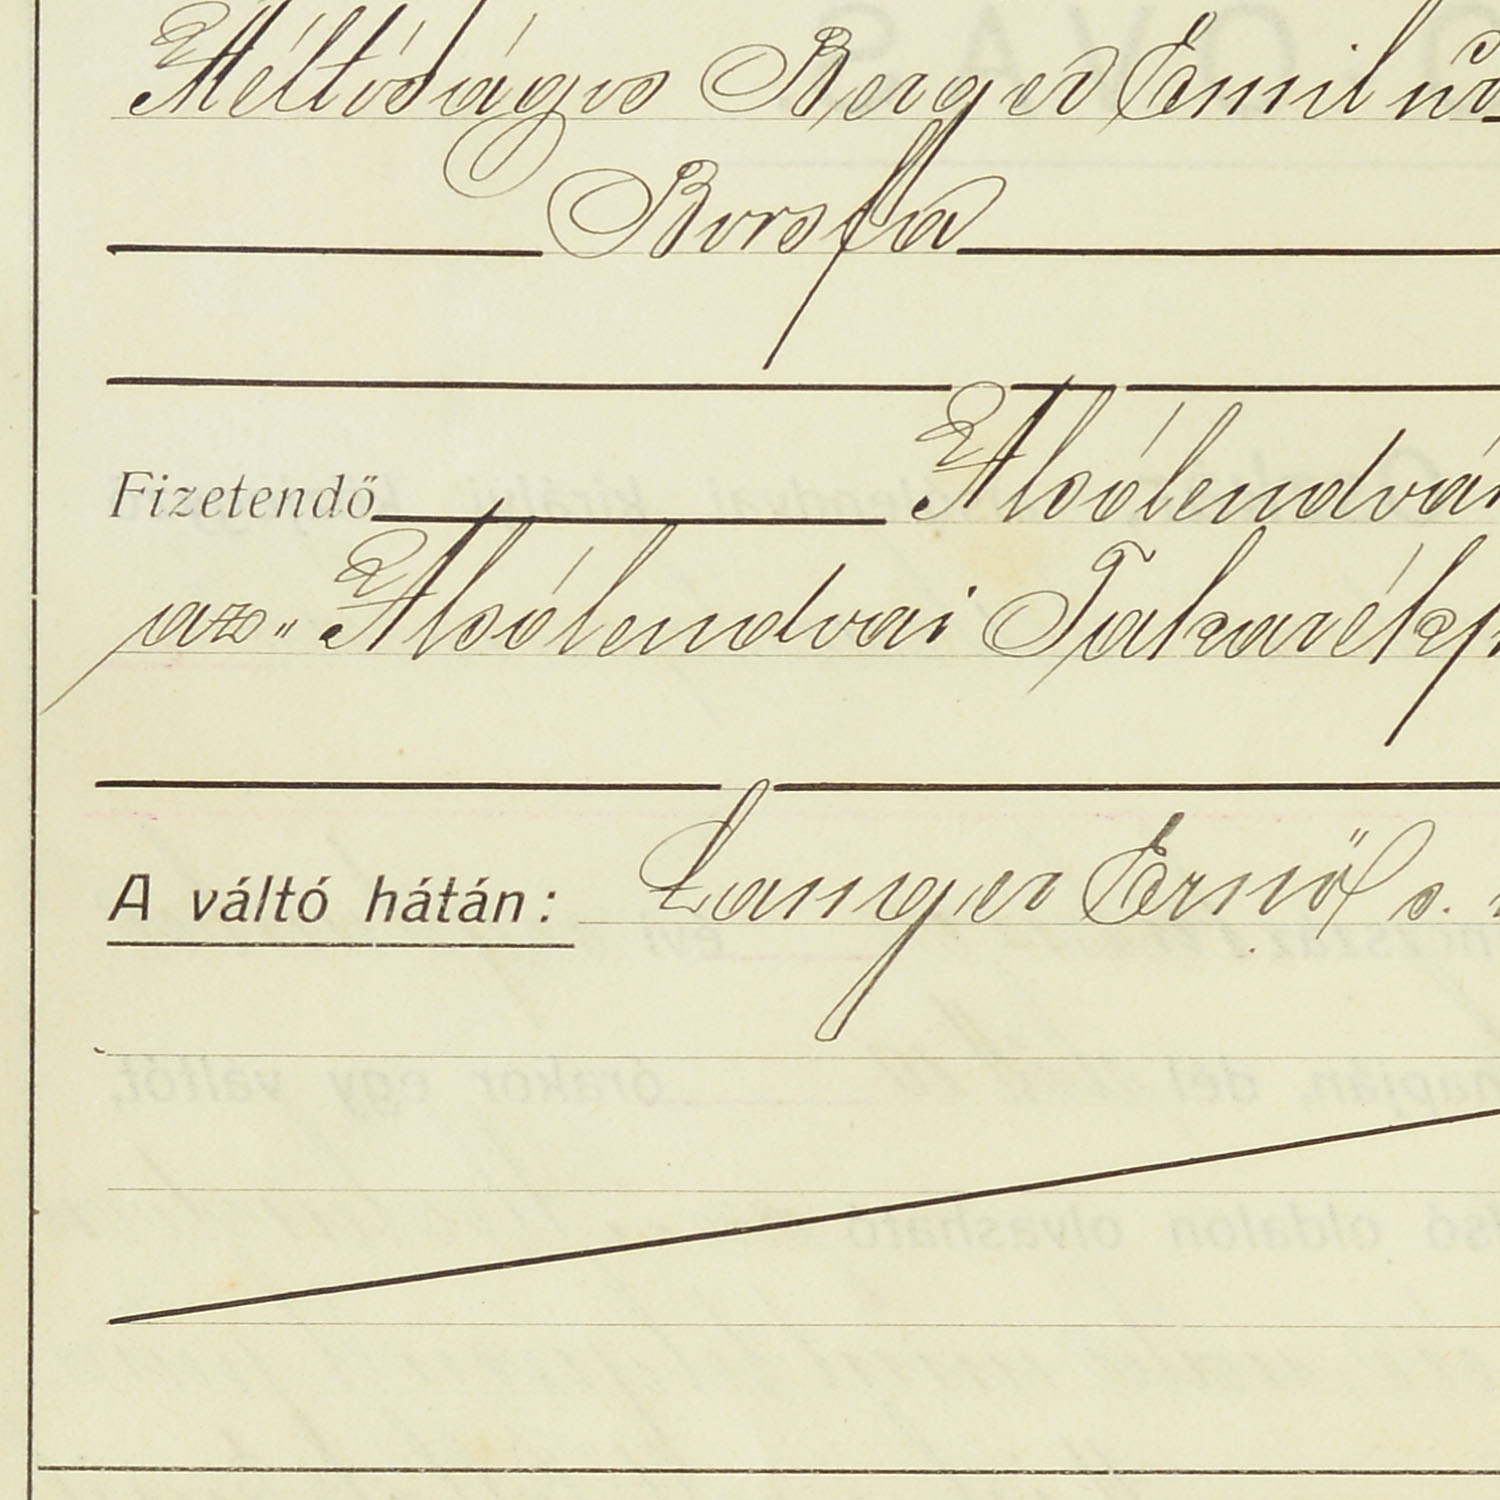 Méltóságos Berger Emil úr
Borsfa
Fizetendő Alsólendvá
az „Alsólendvai Takarékp
A váltó hátán: Langer Ernő s.